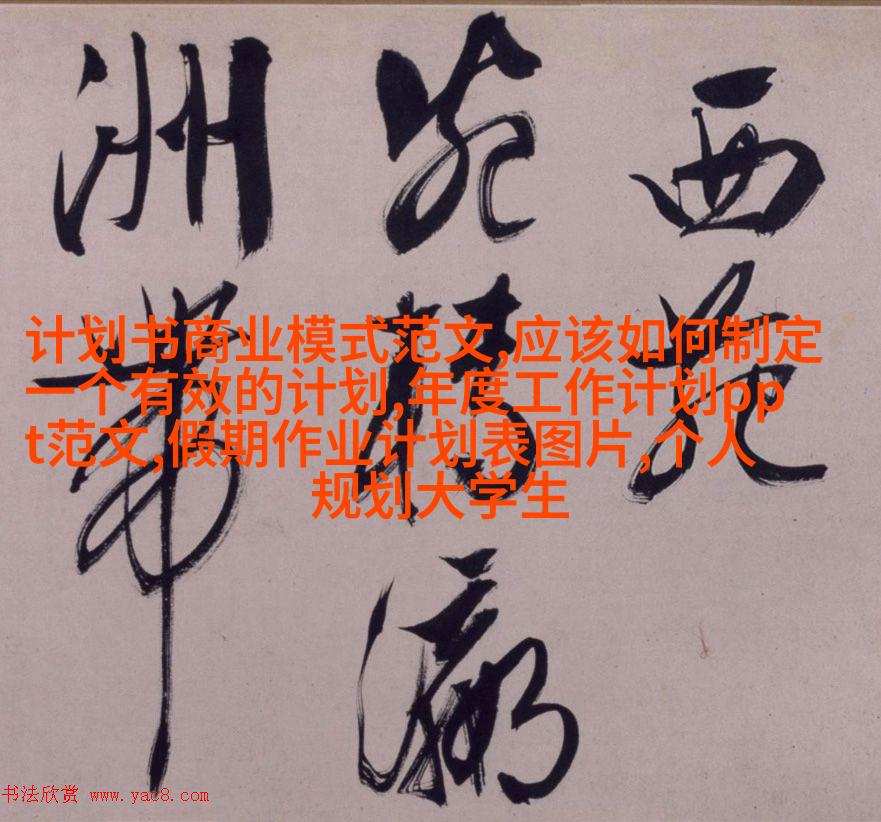 西苑
瀛
洲
计划书商业模式范文,应该如何制定
一个有效的计划,年度工作计划pp
t范文,假期作业计划表图片,个人
规划大学生
书法欣赏 www.yac8.com